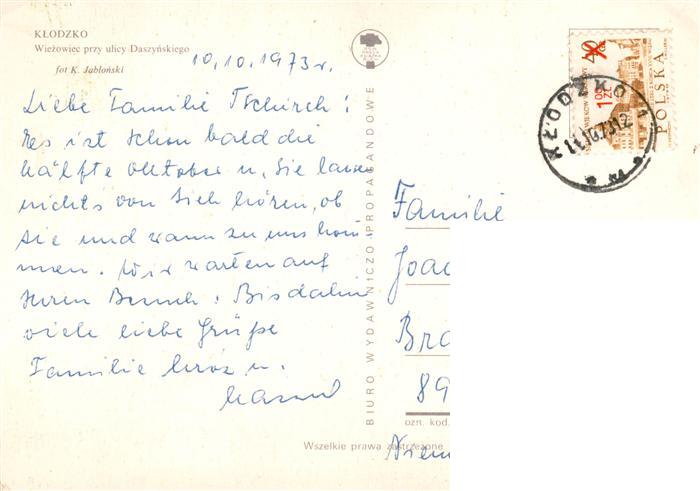 KŁODZKO
Wieżowiec przy ulicy Daszyńskiego
fot K. Jabłoński
10.10.1973 r.
Liebe Familie Tschirch!
Es ist schon bald die
hälfte Oktober u. Sie lassen
nichts von Sich hören, ob
sie und wann zu uns kom-
men. Wir warten auf
Ihren Besuch. Bis dahin
viele liebe Grüße
Familie u.
BIURO WYDAWNICZO PROPAGANDOWE
40
1 05 ZŁ
POLSKA
KŁODZKO 1
Familie
Joac
Bra
89
ozn. kod.
Niem
Wszelkie prawa zastrzeżone